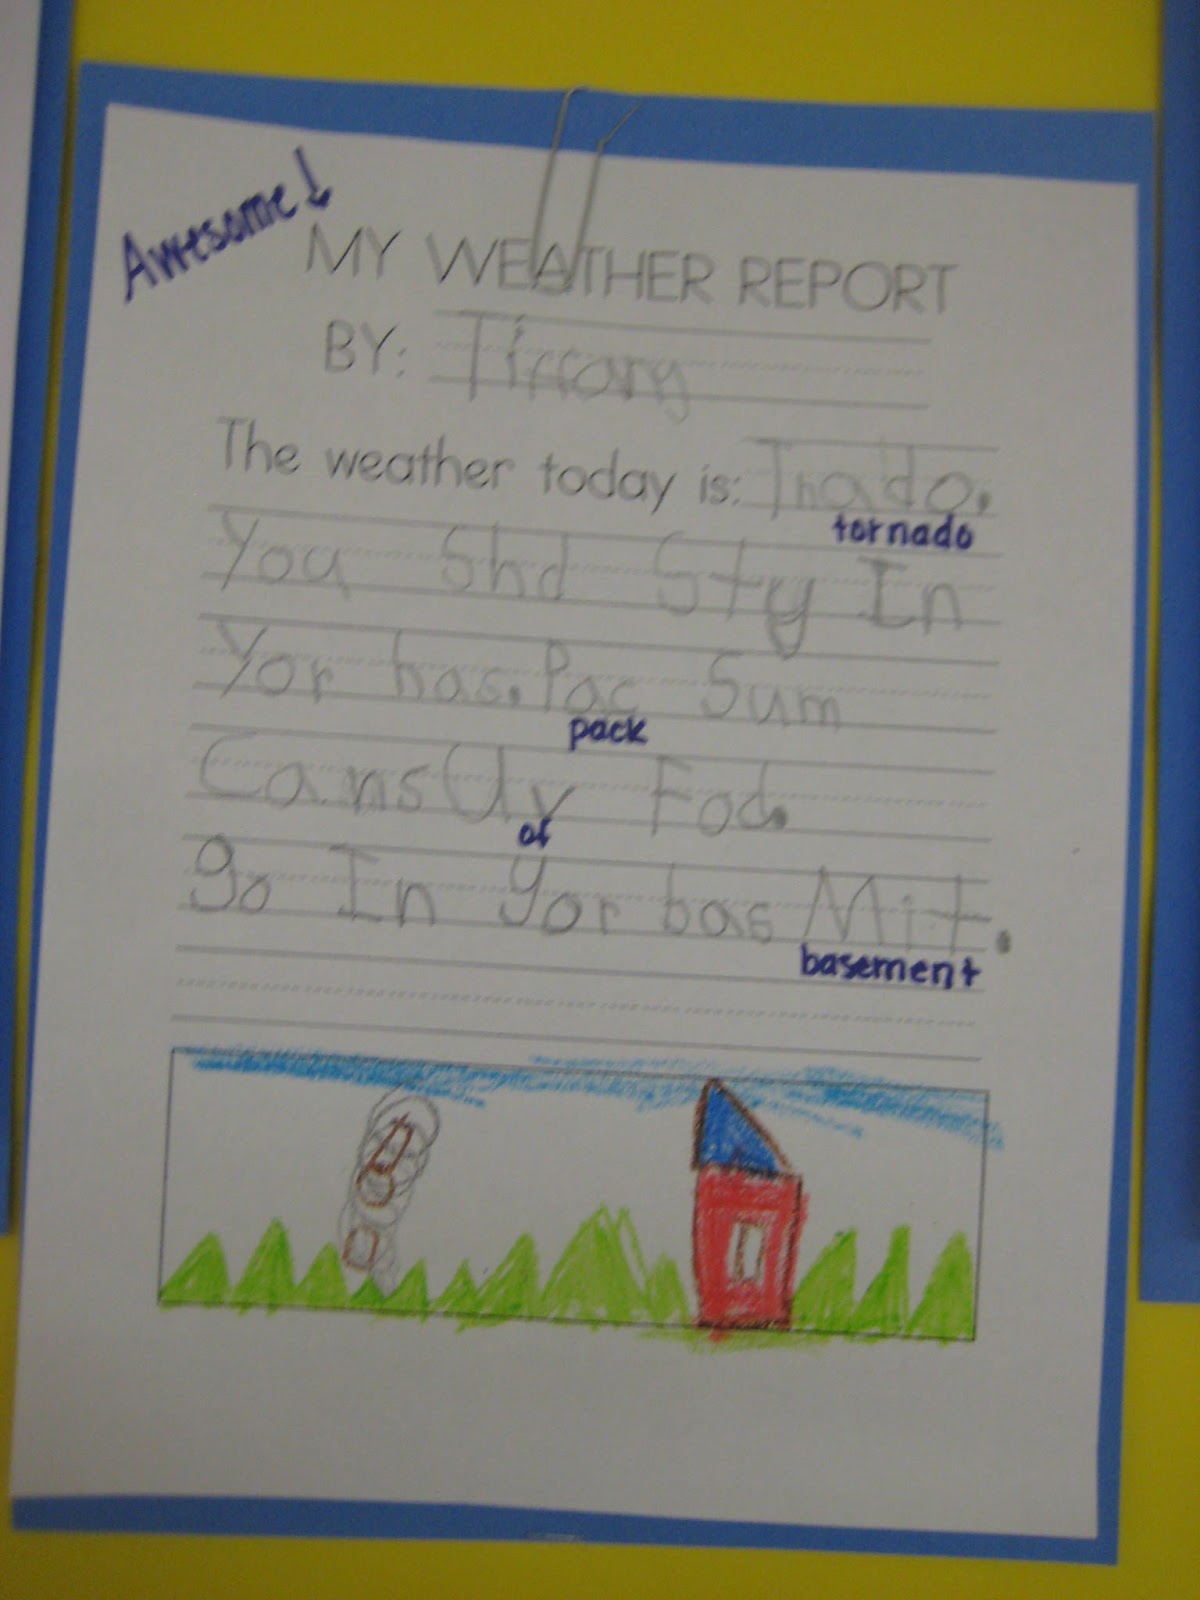 Awesome!
MY WEATHER REPORT
BY: Tiffany
The weather today is: Tnado.
tornado
You Shd Sty In
Yor has. Pac Sum
pack
Cans Uv Fod.
of
go In yor bas Mit.
basement